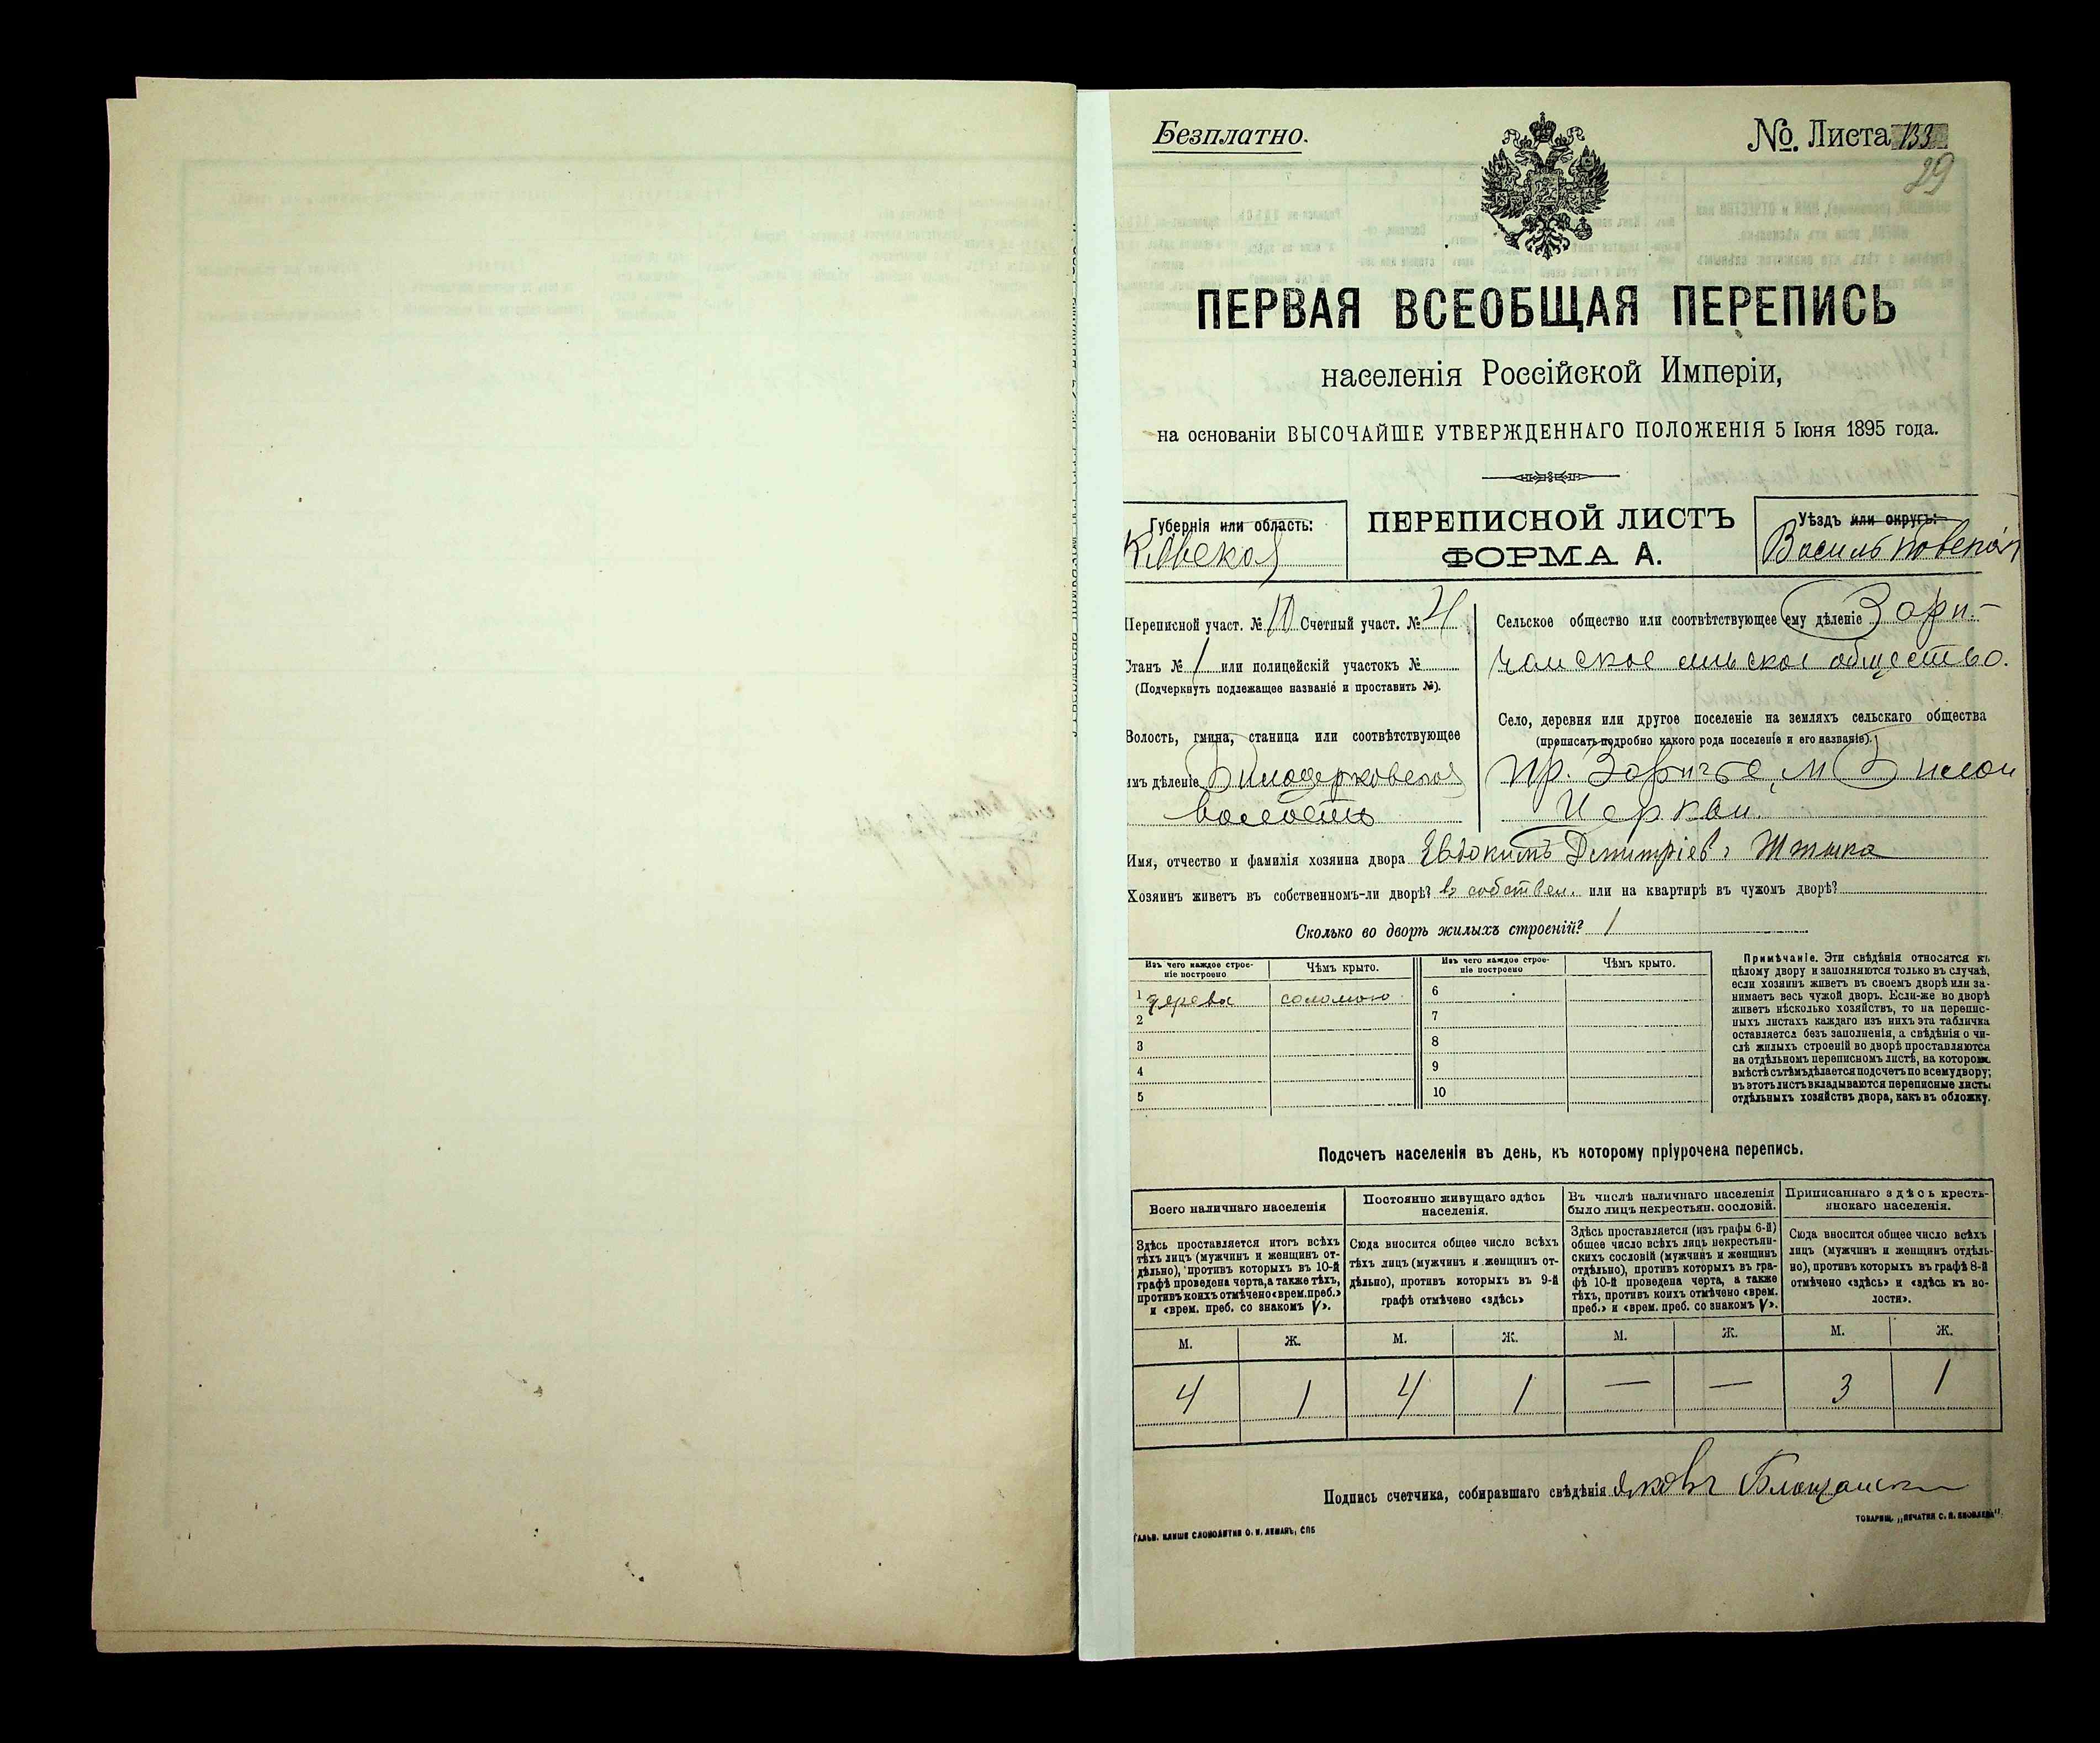 Безплатно.
№. Листа 133
29
ПЕРВАЯ ВСЕОБЩАЯ ПЕРЕПИСЬ
населенія Россійской Имперіи,
на основаніи ВЫСОЧАЙШЕ УТВЕРЖДЕННАГО ПОЛОЖЕНІЯ 5 Іюня 1895 года.
Губернія или область:
Кіевская
ПЕРЕПИСНОЙ ЛИСТЪ
ФОРМА А.
Уѣздъ или округъ:
Васильковскій
Переписной участ. № 10 Счетный участ. № 4
Станъ № 1 или полицейскій участокъ №
(Подчеркнуть подлежащее названіе и проставить №).
Волость, гмина, станица или соотвѣтствующее
имъ дѣленіе Билоцерковская
волость
Сельское общество или соотвѣтствующее ему дѣленіе Зари-
чанское сельское общество.
Село, деревня или другое поселеніе на земляхъ сельскаго общества
(прописать подробно какого рода поселеніе и его названіе).
пр. Заричье, м Билои
Церкви.
Имя, отчество и фамилія хозяина двора Евдокимъ Димитріев
Хозяинъ живетъ въ собственномъ-ли дворѣ? въ собствен. или на квартирѣ въ чужомъ дворѣ?
Сколько во дворѣ жилыхъ строеній? 1
Изъ чего каждое строе-
ніе построено
Чѣмъ крыто.
Изъ чего каждое строе-
ніе построено
Чѣмъ крыто.
1 дерева соломою 6
2 7
3 8
4 9
5 10
Примѣчаніе. Эти свѣдѣнія относятся къ
цѣлому двору и заполняются только въ случаѣ,
если хозяинъ живетъ въ своемъ дворѣ или за-
нимаетъ весь чужой дворъ. Если-же во дворѣ
живетъ нѣсколько хозяйствъ, то на перепис-
ныхъ листахъ каждаго изъ нихъ эта табличка
оставляется безъ заполненія, а свѣдѣнія о чи-
слѣ жилыхъ строеній во дворѣ проставляются
на отдѣльномъ переписномъ листѣ, на которомъ
вмѣстѣ съ тѣмъ дѣлается подсчетъ по всему двору;
въ этотъ листъ вкладываются переписные листы
отдѣльныхъ хозяйствъ двора, какъ въ обложку.
Подсчетъ населенія въ день, къ которому пріурочена перепись.
Всего наличнаго населенія
Здѣсь проставляется итогъ всѣхъ
тѣхъ лицъ (мужчинъ и женщинъ от-
дѣльно), противъ которыхъ въ 10-й
графѣ проведена черта, а также тѣхъ,
противъ коихъ отмѣчено «врем. преб.»
и «врем. преб. со знакомъ V».
Постоянно живущаго здѣсь
населенія.
Сюда вносится общее число всѣхъ
тѣхъ лицъ (мужчинъ и женщинъ от-
дѣльно), противъ которыхъ въ 9-й
графѣ отмѣчено «здѣсь»
Въ числѣ наличнаго населенія
было лицъ некрестьян. сословій.
Здѣсь проставляется (изъ графы 6-й)
общее число всѣхъ лицъ некрестьян-
скихъ сословій (мужчинъ и женщинъ
отдѣльно), противъ которыхъ въ гра-
фѣ 10-й проведена черта, а также
тѣхъ, противъ коихъ отмѣчено «врем.
преб.» и «врем. преб. со знакомъ V».
Приписаннаго здѣсь кресть-
янскаго населенія.
Сюда вносится общее число всѣхъ
лицъ (мужчинъ и женщинъ отдѣль-
но), противъ которыхъ въ графѣ 8-й
отмѣчено «здѣсь» и «здѣсь къ во-
лости».
М. Ж. М. Ж. М. Ж. М. Ж.
4 1 4 1 — — 3 1
Подпись счетчика, собиравшаго свѣдѣнія Яковъ
ГАЛЬВ. КЛИШЕ СЛОВОЛИТНИ О. И. ЛЕМАНЪ, СПБ
ТОВАРИЩ. „ПЕЧАТНЯ С. П. ЯКОВЛЕВА".